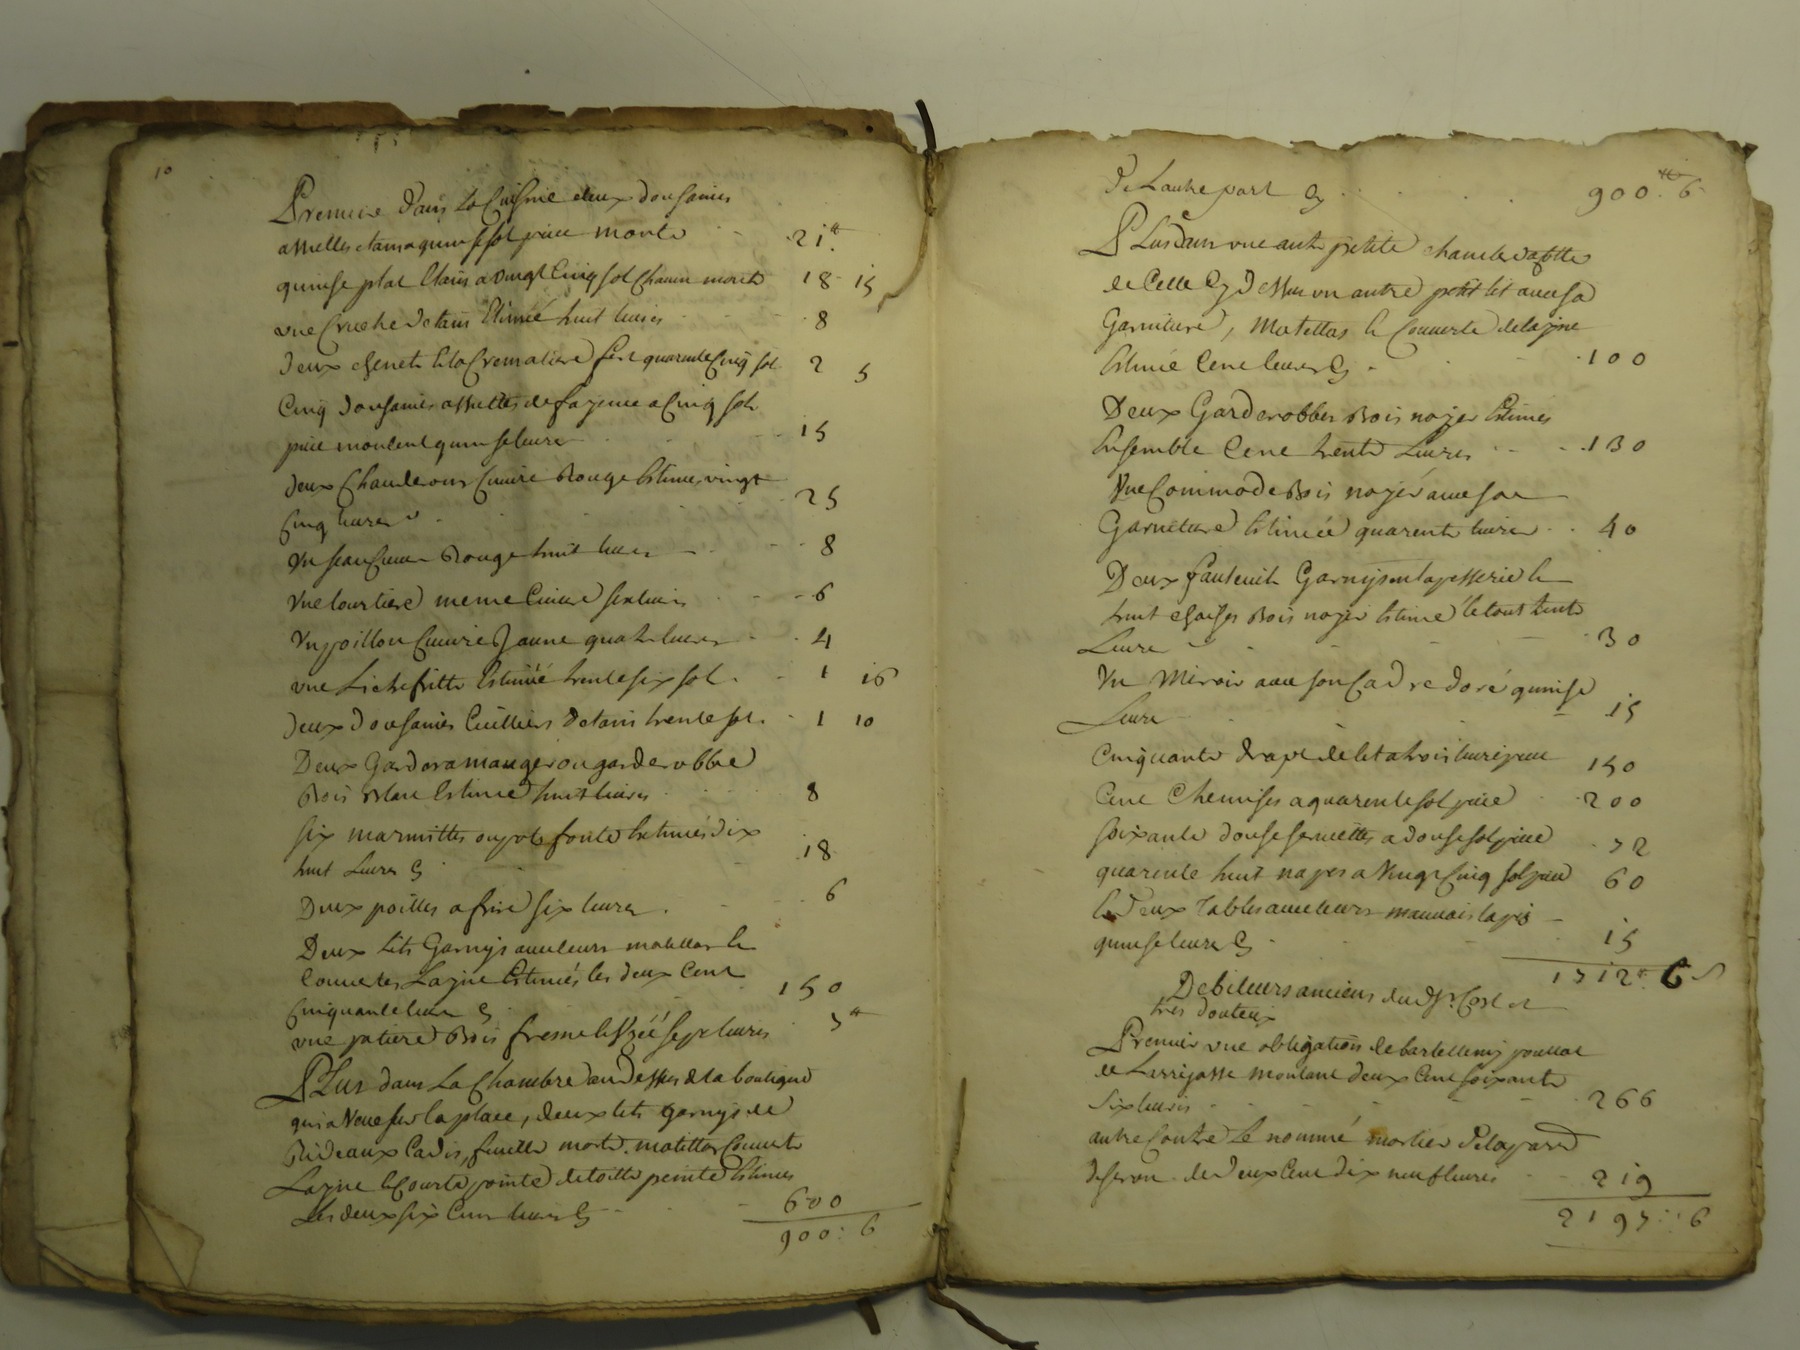 10
Premiere dans La Cuisine deux dousaines
assiettes etain a quinse sol piece monte 21 ₶
quinse plat Etain a vingt Cinq sol Chacun monte 18 15
une Cruche d'etain Estimé huit livres 8
deux chenets et la Cremaliere fert quarente Cinq sol 2 5
Cinq dousaines assiettes de fayence a Cinq sols
piece montent quinse livres 15
deux Chauderons Cuivre Rouge Estimes vingt
Cinq livres 25
Un seau Cuivre Rouge huit livres 8
Une tourtiere meme Cuivre six livres 6
Un poillon Cuivre Jaune quatre livres 4
une Lichefritte Estimée trente six sol 1 16
deux dousaines Cuilliers d'etain trente sol 1 10
Deux Garde a manger ou garderobbe
Bois Blanc Estimé huit livres 8
six marmittes ou pots fonte Estimés dix
huit Livres Cy 18
Deux poilles a frire six livres 6
Deux Lits Garnys avec leurs matellas et
Couvertes Layne Estimés les deux Cent
Cinquante livres Cy 150
une patiere Bois fresne sept livres 7 ₶
PLus dans La Chambre au dessus de la boutique
qui a Veue sur la place, deux lits garnys de
Rideaux Cadis, feuille morte, matellas Couverte
Layne et Courte pointe de toille peinte Estimes
Les deux six Cens livres Cy 600
900 : 6
De L'autre part Cy 900 ₶ 6
PLus dans une autre petite chambre a Cotte
de Celle Cy dessus un autre petit lit avec sa
Garniture, Matellas et Couverte de layne
Estimé Cent livres Cy 100
Deux Garderobbes Bois noyer Estimés
Ensemble Cent trente Livres 130
Une Commode Bois noyer avec sa
Garniture Estimée quarente livres 40
Deux fauteuils Garnys en tapesserie et
huit chaises Bois noyer Estimé le tout trente
Livres 30
Un Miroir avec son Cadre doré quinse
Livres 15
Cinquante drapt de lit a trois livres piece 150
Cent Chemises a quarente sol piece 200
soixante douse serviettes a douse sol piece 72
quarente huit napes a Vingt Cinq sol piece 60
et deux Tables avec leurs mauvais tapis
quinse livres Cy 15
1712 ₶ 6 s
Debiteurs anciens du dt Sr Cost et
tres douteux
Premier une obligation de bartellemy
de montant deux Cent soixante
six livres 266
autre Contre Le nommé mortier
de deux Cent dix neuf livres 219
2197 : 6